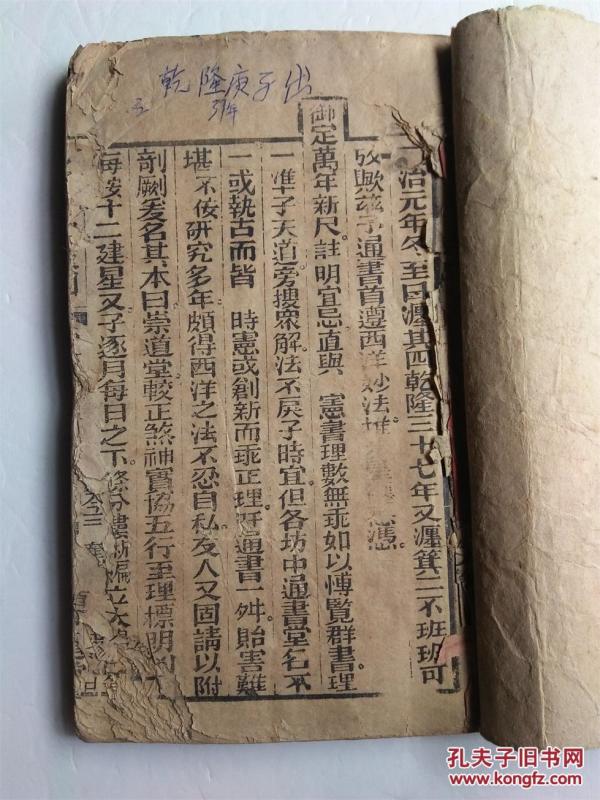 乾隆庚子
治元年冬至日躔其四乾隆三十七年又躔箕三不班班可
攷歟茲予通書首遵西洋妙法推
御定萬年新尺註明宜忌直與 憲書理數無乖如以愽覧群書理
一準予天道旁搜眾解法不戾予時宜但各坊中通書堂名不
一或執古而皆 時憲或創新而乖正理 通書一舛貽害難
堪不侫研究多年頗得西洋之法不忍自私友人又固請以附
剞劂爰名其本曰崇道堂較正煞神實協五行至理標明
每按十二建星又予逐月每日之下條分
孔夫子旧书网
www.kongfz.com